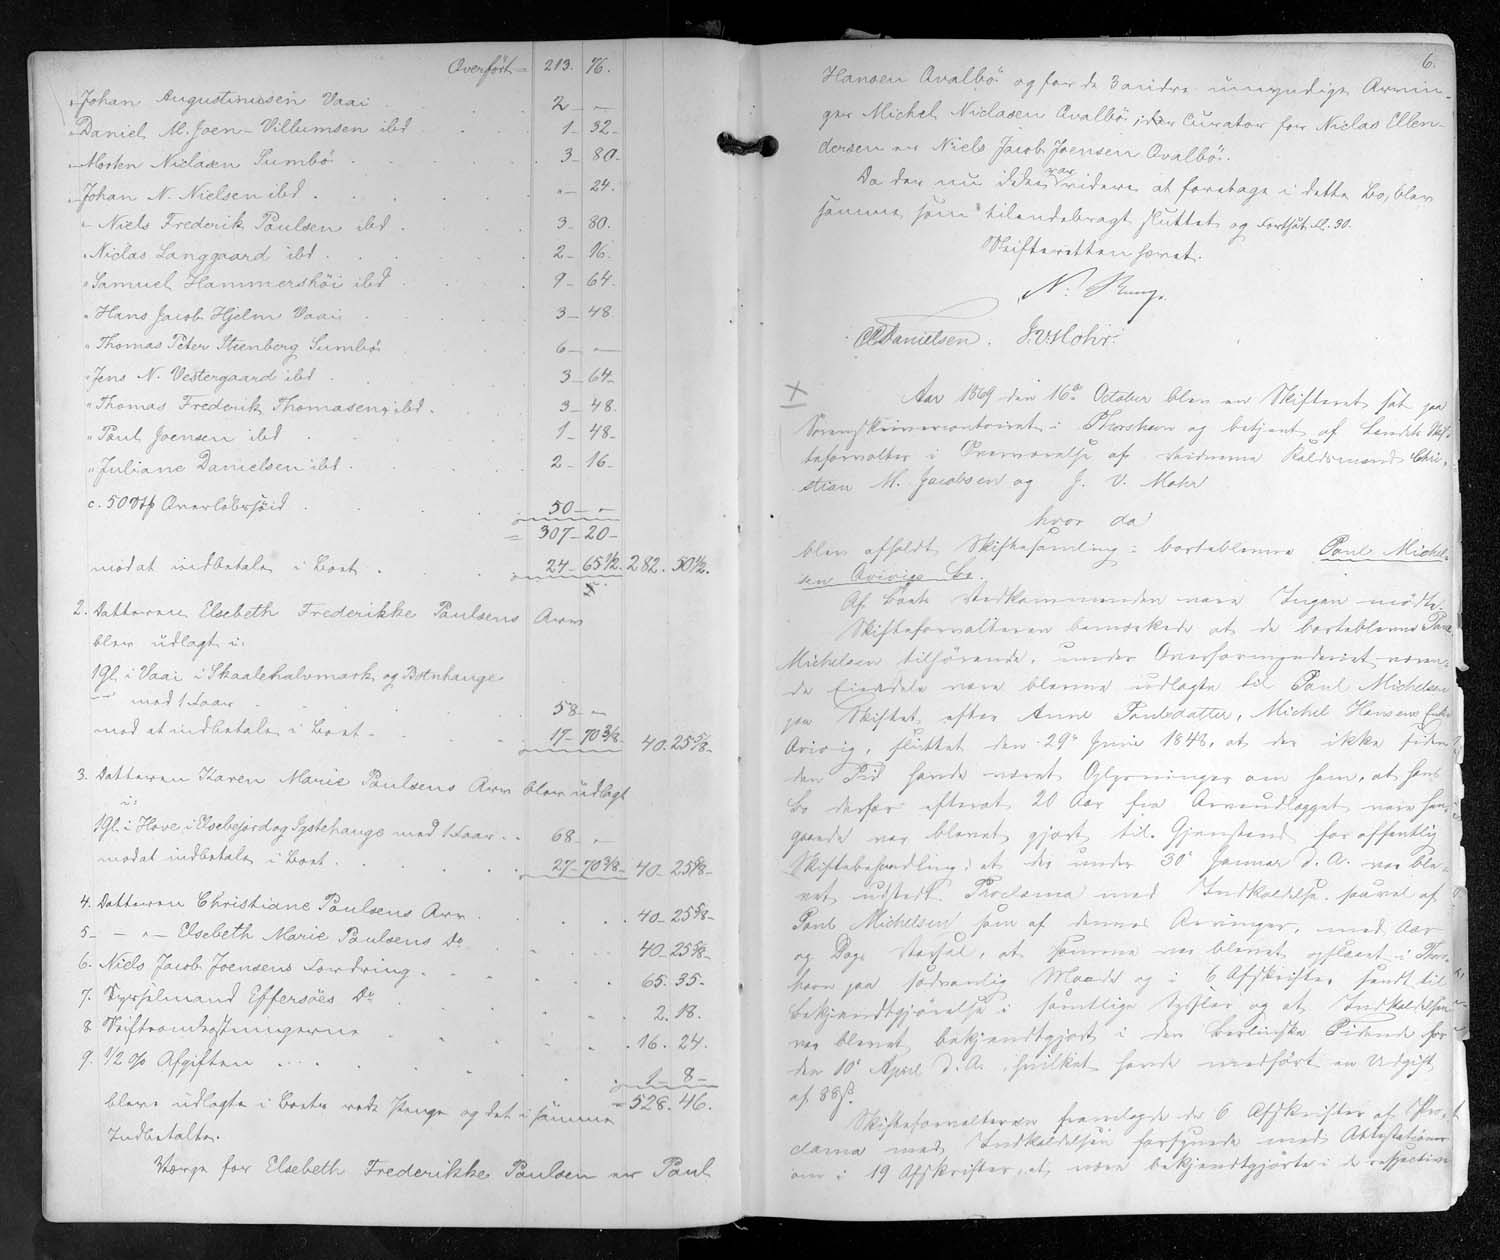 Overført = 213. 76.
" Johan Augustinusen Vaai . . . 2 — "
" Daniel M. Joen-Villumsen ibd . . 1 — 32 —
" Morten Niclasen Sumbø . . . 3 — 80 —
" Johan N. Nielsen ibd . . . " — 24 —
" Niels Frederik Paulsen ibd . . . 3 — 80.
" Niclas Langgaard ibd . . . 2 — 16.
" Samuel Hammershøi ibd . . . 9 — 64 —
" Hans Jacob Hjelm Vaai . . . 3 — 48
" Thomas Peter Steenberg Sumbø . . 6 — "
" Jens N. Vestergaard ibd . . . 3 — 64 —
" Thomas Frederik Thomasen ibd . . . 3 — 48 —
" Paul Joensen ibd . . . 1 — 48 —
" Juliane Danielsen ibd . . . 2 — 16 —
c. 50 Overløbsjord . . . 50 — "
= 307 — 20 —
modat indbetale i Boet . . . 24 — 65 1/2. 282. 50 1/2.
2. Datteren Elsebeth Frederikke Paulsens Arv
blev udlagt i:
1 Gl. i Vaai i Skaalehalvmark og Botnhauge
med 1 Faar . . . 58 — "
mod at indbetale i Boet . . . 17 — 70 3/8 — 40. 25 5/8 —
3. Datteren Karen Marie Paulsens Arv blev udlagt
i:
1 Gl. i Hove i Elsebejord og Systehauge med 1 Faar . . 68 — "
modat indbetale i Boet . . . 27 — 70 3/8 — 40 — 25 5/8 —
4. Datteren Christiane Paulsens Arv . . . 40 — 25 5/8 —
5 — — " — Elsebeth Marie Paulsens Do . . . 40 — 25 5/8 —
6. Niels Jacob Joensens Fordring . . . 65. 35 —
7. Sysselmand Effersøes Do . . . 2. 18.
8 Skifteomkostningerne . . . 16. 24.
9. 1/2 % Afgiften . . . 1 — 8 —
= 528. 46.
bleve udlagte i Boets rede Penge og det i samme
Indbetalte.
Værge for Elsebeth Frederikke Paulsen er Paul
6.
Hansen Qvalbø og for de 3 andre umyndige Arvin-
ger Michel Niclasen Qvalbø; Curator for Niclas Ellen-
dersen er Niels Jacob Joensen Qvalbø.
Da der nu ikke var videre at foretage i dette Bo, blev
samme som tilendebragt sluttet og Fortsat fol. 30.
Skifteretten hævet.
N.
Danielsen. J. V. Mohr.
Aar 1869 den 16de October blev en Skifteret sat paa
Sorenskrivercontoiret i Thorshavn og betjent af Landets Skif-
teforvalter i Overværelse af Vidnerne Christ-
stian M. Jacobsen og J. V. Mohr
hvor da
blev afholdt Skiftesamling i bortblevne Paul Michel-
sen Qvivigs Bo.
Af Boets Vedkommende var Ingen mødt.
Skifteforvalteren bemærkede at de bortblevne Paul
Michelsen tilhørende, under Overformynderiet væren-
de Eiendele vare blevne udlagte til Paul Michelsen
paa Skiftet efter Anne Poulsdatter, Michel Hansens Enke
Qvivig, sluttet den 29de Juni 1848, at der ikke siden
den Tid havde været Oplysninger om ham, at hans
Bo derfor efterat 20 Aar fra Arveudlægget vare hen-
gaaede var blevet gjort til Gjenstand for offentlig
Skiftebehandling; at der under 30te Januar d. A. var ble-
vet udstedt Proclama med Indkaldelse saavel af
Paul Michelsen som af dennes Arvinger, med Aar
og Dags Varsel, at samme var blevet oplæst i Thors-
havn paa sædvanlig Maade og i 6 Afskrifter sendt til
Bekjendtgjørelse i samtlige Sysler og at Indkaldelsen
var blevet bekjendtgjort i den Berlinske Tidende for
den 10de April d. A. hvilket havde medført en Udgift
af 88 ß.
Skifteforvalteren fremlagde de 6 Afskrifter af Pro-
clama med Indkaldelsen forsynede med Attestationer
om i 19 Afskrifter, at være bekjendtgjørte i de respective